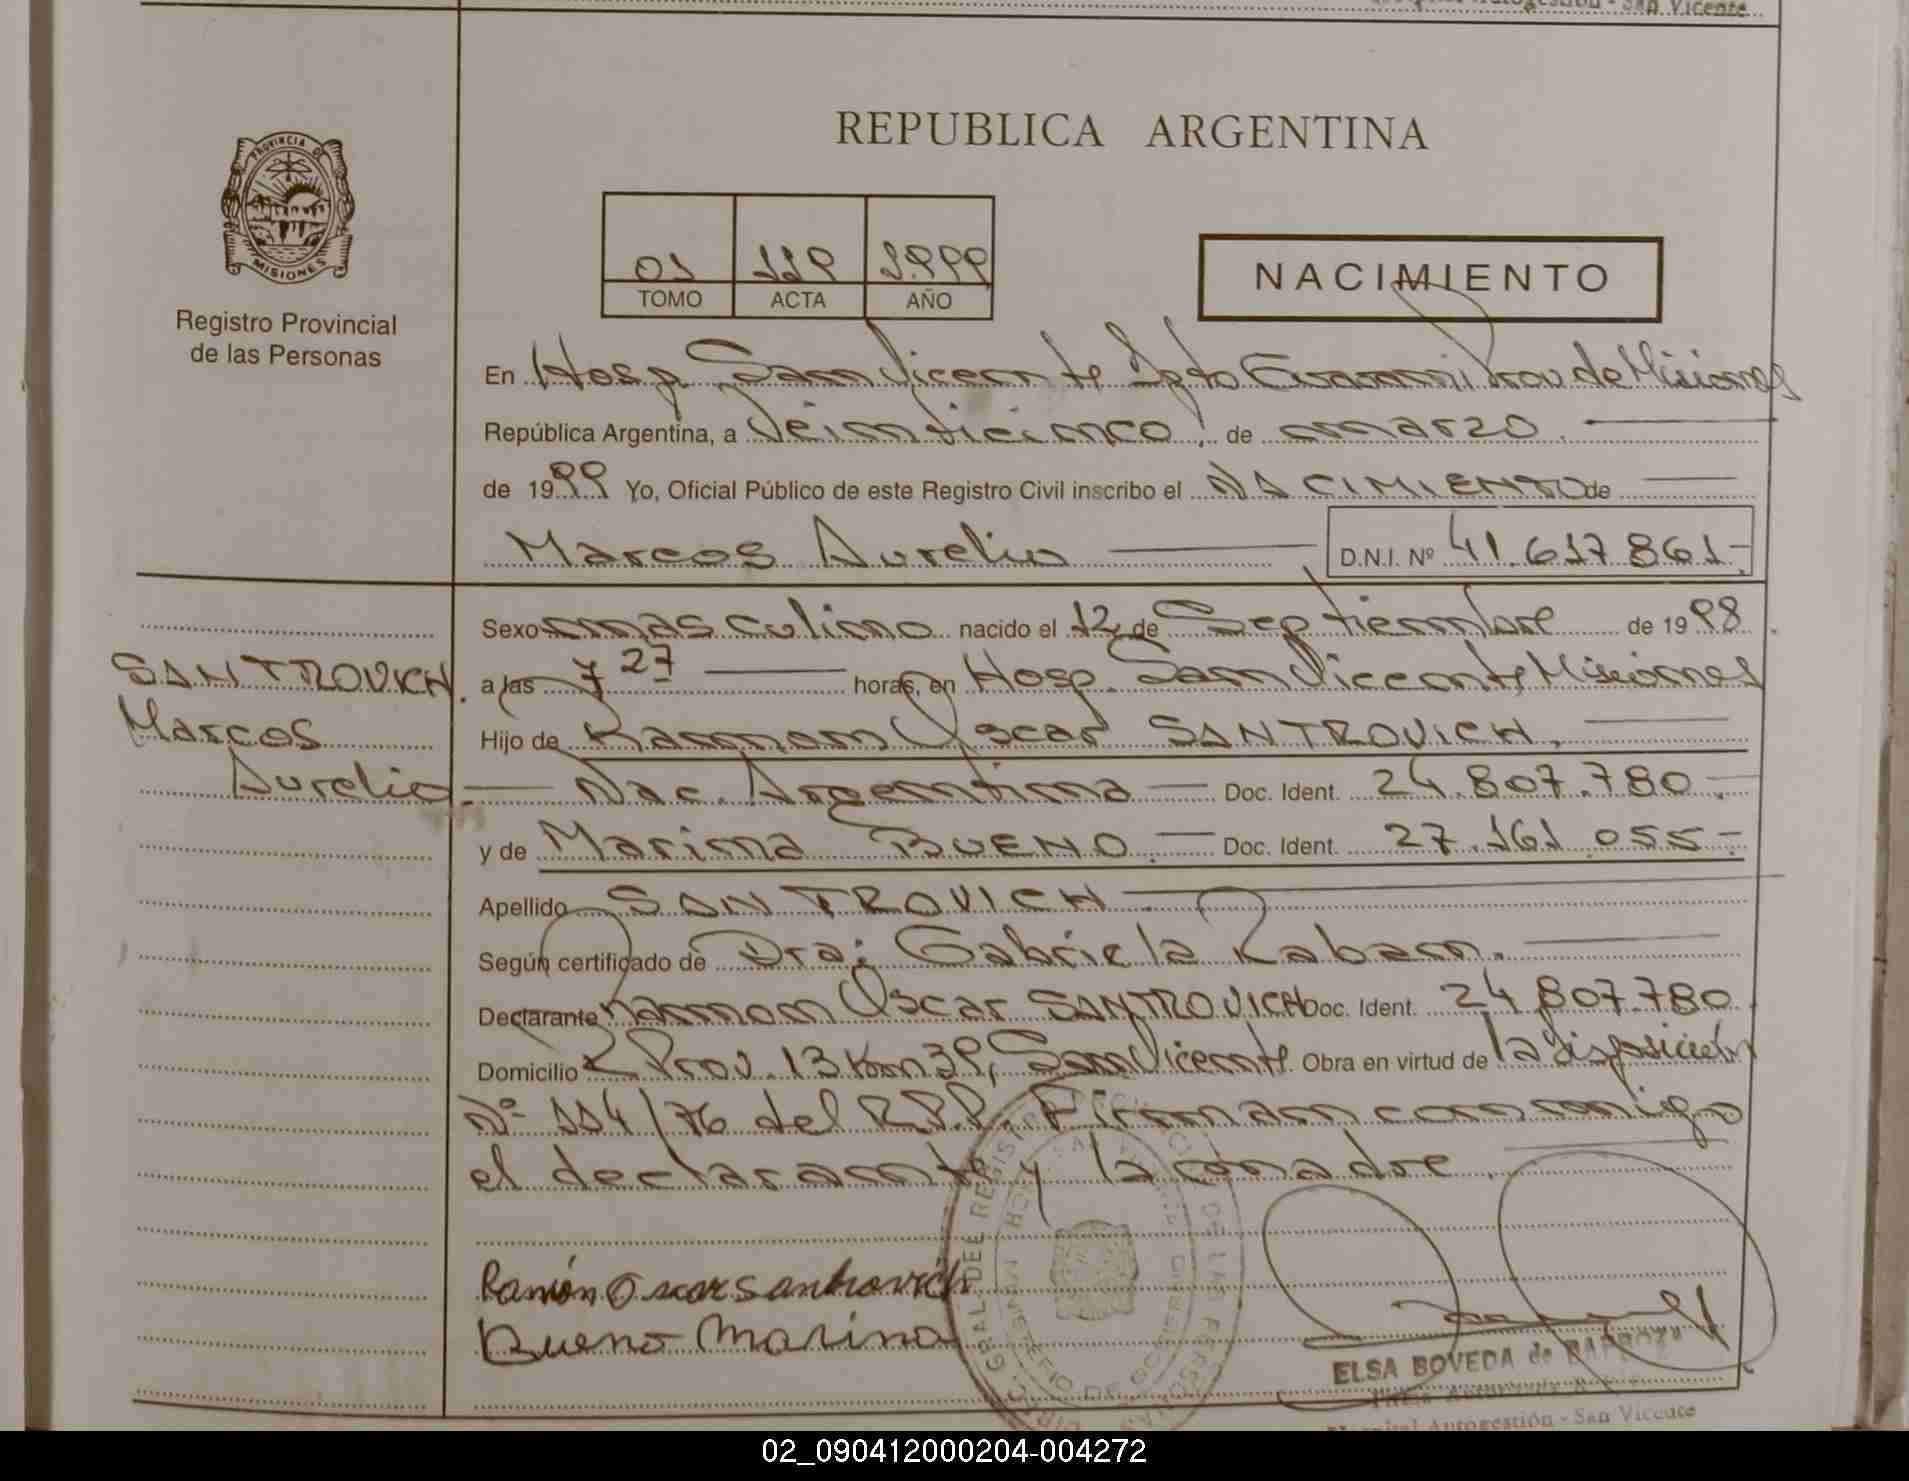 San Vicente
REPUBLICA ARGENTINA
PROVINCIA DE
MISIONES
Registro Provincial
de las Personas
01 119 1.999
TOMO ACTA AÑO
NACIMIENTO
En Hosp San Vicente Dpto Guarani Prov de Misiones
República Argentina, a Veinticinco de marzo.
de 1999 Yo, Oficial Público de este Registro Civil inscribo el NACIMIENTO de
Marcos Aurelio D.N.I. Nº 41.617.861-
Sexo masculino nacido el 12 de Septiembre de 1998.
SANTROVICH.
Marcos
Aurelio.
a las 7 27 horas, en Hosp. San Vicente Misiones
Hijo de Ramon Oscar SANTROVICH.
Nac. Argentina Doc. Ident. 24.807.780.
y de Marina BUENO. Doc. Ident. 27.161.055-
Apellido SANTROVICH.
Según certificado de Dra: Gabriela Raban.
Declarante Ramon Oscar SANTROVICH Doc. Ident. 24.807.780.
Domicilio R Prov. 13 Km 39, San Vicente. Obra en virtud de la disposición
Nº 114/76 del R.P.P. Firman conmigo
el declarante y la madre.
Ramón Oscar Santrovich
Bueno Marina
ELSA BOVEDA de BARBOZA
Hospital Autogestión - San Vicente
02_090412000204-004272